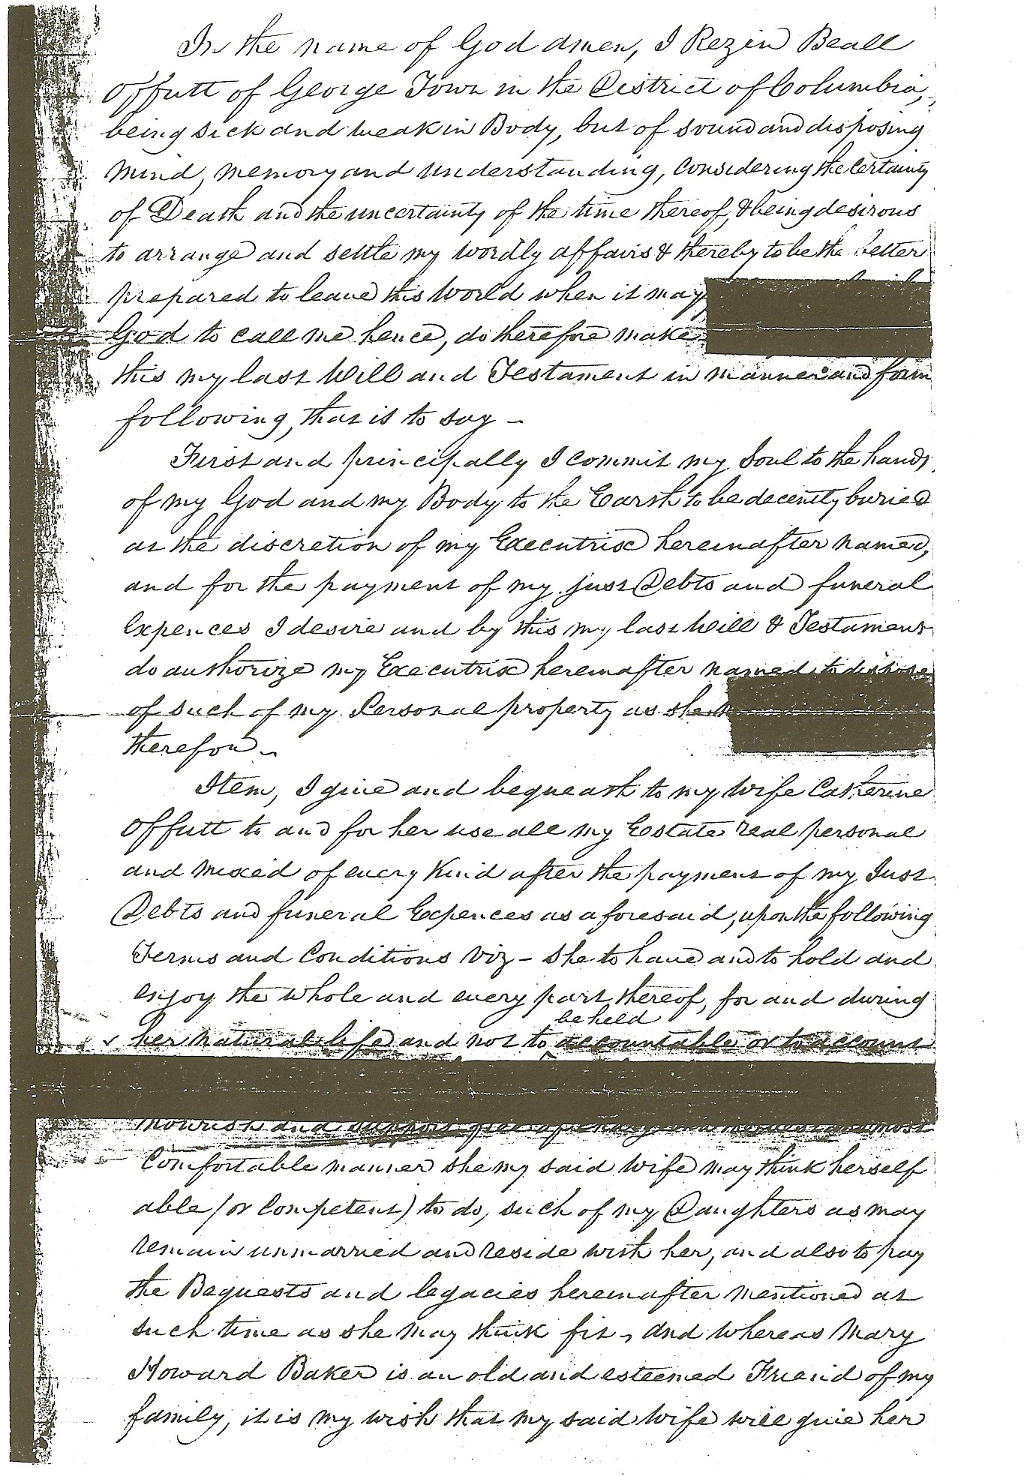 In the name of God amen, I Rezin Beall
Offutt of George Town in the District of Columbia,
being sick and weak in Body, but of sound and disposing
mind, memory and understanding, considering the certainty
of Death and the uncertainty of the time thereof, & being desirous
to arrange and settle my wordly affairs & thereby to be the better
prepared to leave this World when it may
God to call me hence, do therefore make
this my last Will and Testament in manner and form
following, that is to say -
First and principally I commit my Soul to the hands
of my God and my Body to the Earth to be decently buried
at the discretion of my Executrix hereinafter named,
and for the payment of my just Debts and funeral
Expences I desire and by this my last Will & Testament
do authorize my Executrix hereinafter named to dispose
of such of my Personal property as she
therefor -
Item, I give and bequeath to my wife Catherine
Offutt to and for her use all my Estate real personal
and mixed of every Kind after the payment of my Just
Debts and funeral Expences as aforesaid, upon the following
Terms and Conditions viz - she to have and to hold and
enjoy the whole and every part thereof, for and during
be held
her natural life and not to accountable or to account
nourish and support
Comfortable manner she my said wife may think herself
able (or Competent) to do, such of my Daughters as may
remain unmarried and reside with her, and also to pay
the Bequests and legacies hereinafter mentioned at
such time as she may think fit, and whereas Mary
Howard Baker is an old and esteemed Friend of my
family, it is my wish that my said Wife will give her